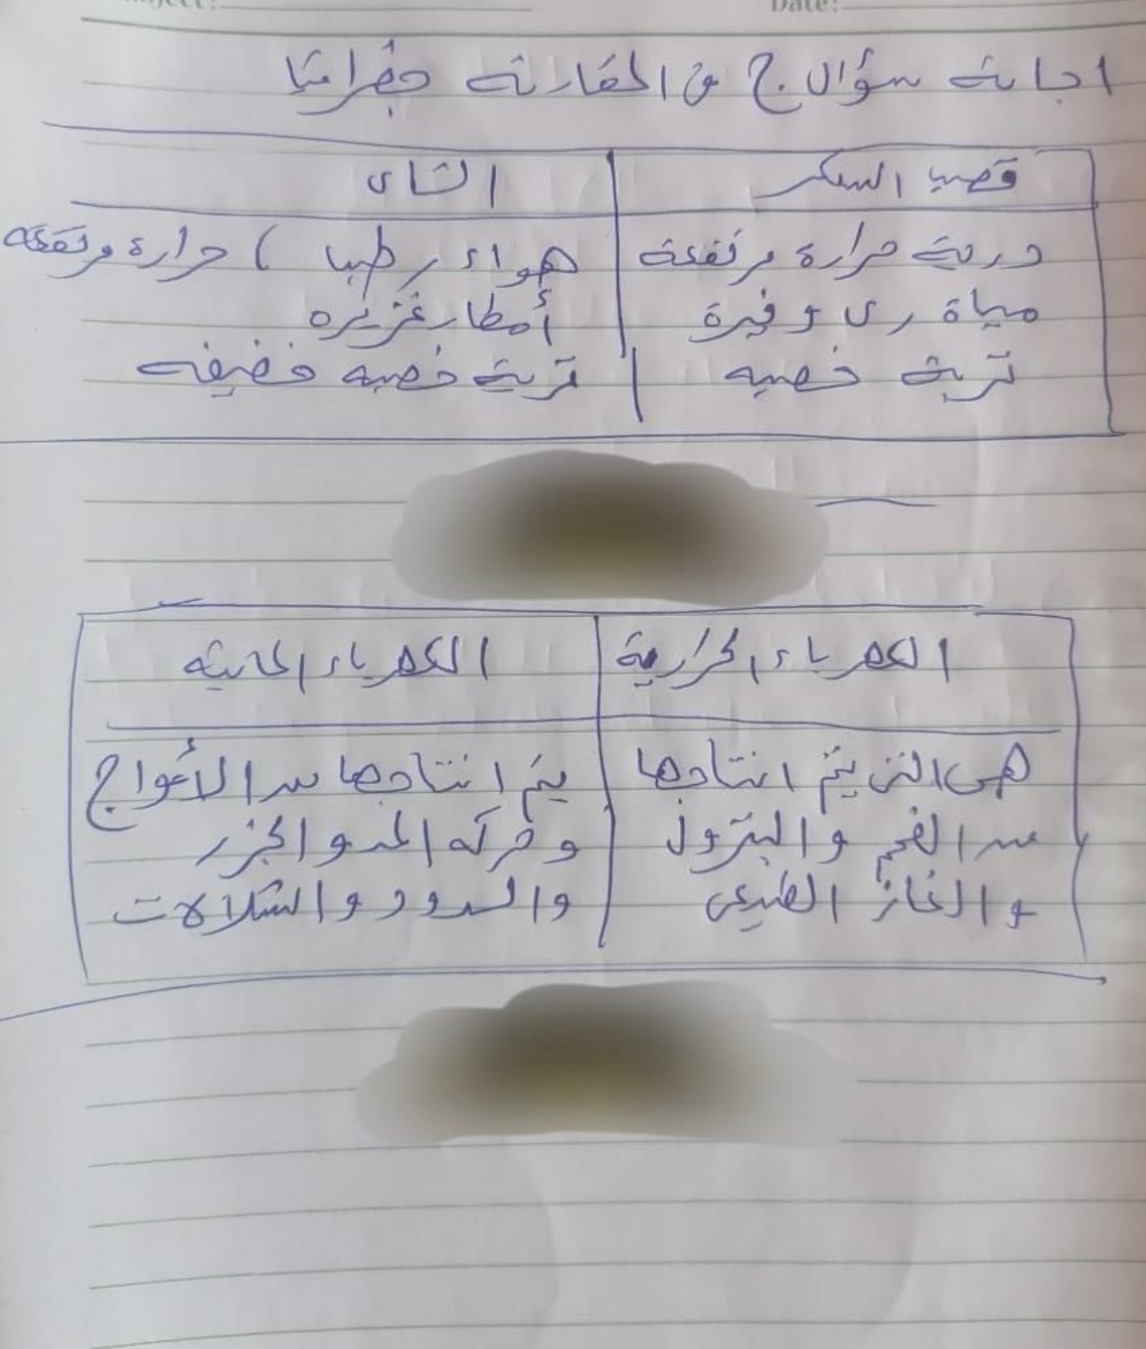 Date:
اجابة سؤال ج عن المقارنة جغرافيا
قصب السكر
الشاى
درجة حرارة مرتفعة
هواء رطبا ) حرارة مرتفعه
مياة رى وفيرة
أمطار غزيره
تربة خصبه
تربة خصبه خفيفه
الكهرباء الحرارية
الكهرباء المائية
هى التى يتم انتاجها
يتم انتاجها من الأمواج
من الفحم والبترول
وحركه المد والجزر
والغاز الطبيعى
والسدود والشلالات